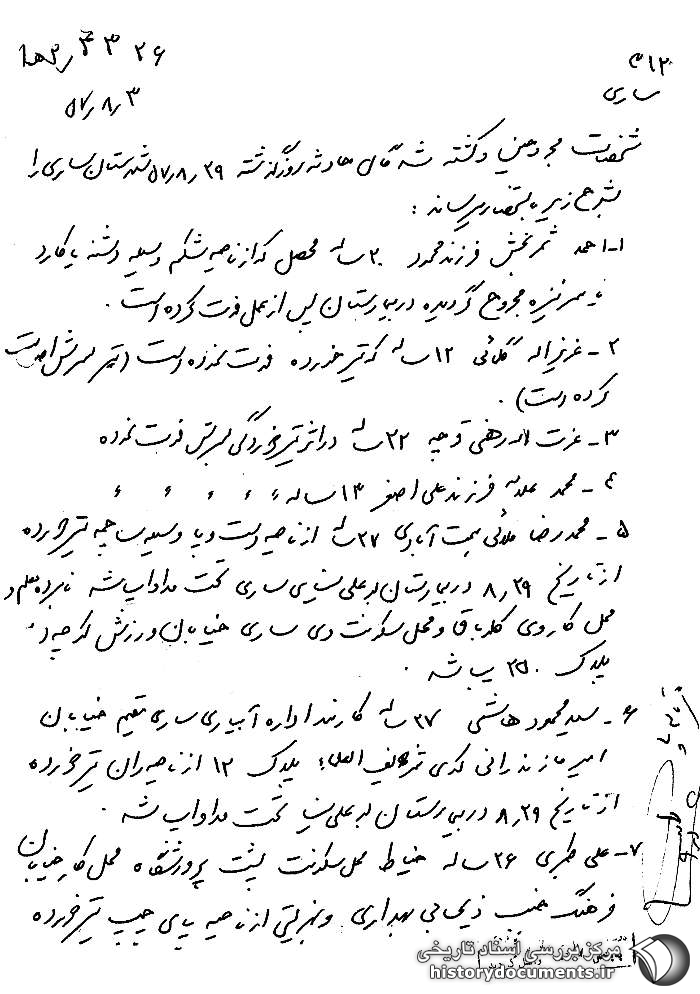 ۳۱۲
ساری
۳۳۲۶
۵۷٫۸٫۳
مشخصات مجروحین و کشته شدگان حادثه روز گذشته ۵۷٫۸٫۲۹ شهرستان ساری را
بشرح زیر باستحضار میرساند :
۱ـ احمد ثمربخش فرزند محمود ۲۰ ساله محصل که از ناحیه شکم وسیله دشنه یا کارد
یا سرنیزه مجروح گردیده در بیمارستان پس از عمل فوت کرده است .
۲ ـ عزیزاله گلائی ۱۲ ساله که تیر خورده فوت نموده است (تیر بسرش اصابت
کرده است) .
۳ ـ عزت اله رهی توجیه ۲۲ ساله در اثر تیرخوردگی بسرش فوت نموده
۴ ـ محمد فرزند علی اصغر ۱۳ ساله ء ء ء ء ء ء
۵ ـ محمدرضا ملائی همت آبادی ۲۷ ساله از ناحیه دست و پا وسیله ساچمه تیر خورده
از تاریخ ۸٫۲۹ در بیمارستان بوعلی سینای ساری تحت مداوا میباشد نامبرده معلم و
محل کار وی و محل سکونت وی ساری خیابان ورزش کوچه
پلاک ۲۵۰ میباشد .
۶ ـ سید محمود هاشمی ۲۷ ساله کارمند اداره آبیاری ساری مقیم خیابان
امیر مازندرانی کوی شریف العلماء پلاک ۱۲ از ناحیه ران تیر خورده
از تاریخ ۸٫۲۹ در بیمارستان بوعلی سینا تحت مداوا میباشد .
۷ ـ علی طبری ۲۶ ساله خیاط محل سکونت پشت پرورشگاه محل کار خیابان
فرهنگ جنب بهداری وی از ناحیه پای چپ تیر خورده
مرکز بررسی اسناد تاریخی
historydocuments.ir